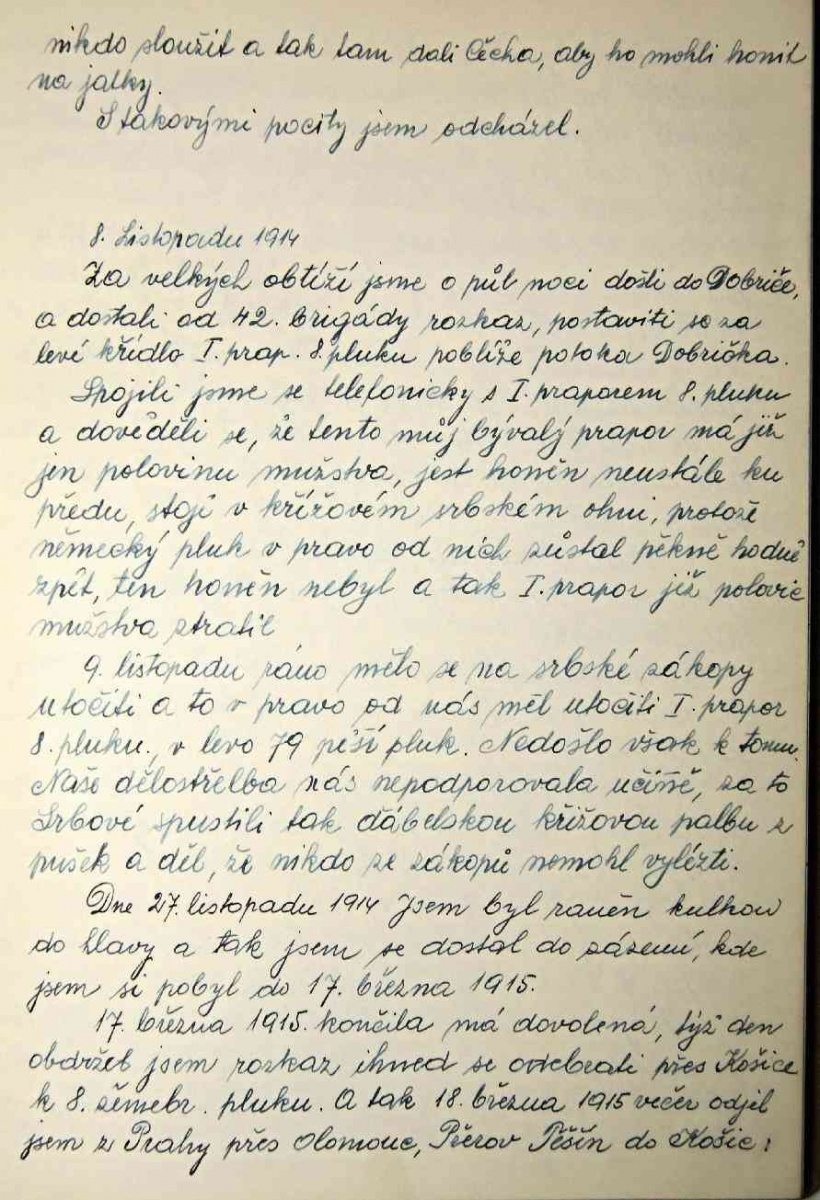 nikdo sloužit a tak tam dali Čecha, aby ho mohli honit
na jatky.
S takovými pocity jsem odcházel.
8. Listopadu 1914
Za velkých obtíží jsme o půl noci došli do Dobriče,
a dostali od 42. brigády rozkaz, postaviti se za
levé křídlo I. prap. 8. pluku poblíže potoka Dobrička.
Spojili jsme se telefonicky s I. praporem 8. pluku
a dověděli se, že tento můj bývalý prapor má již
jen polovinu mužstva, jest honěn neustále ku
předu, stojí v křížovém srbském ohni, protože
německý pluk v pravo od nich zůstal pěkně hodně
zpět, ten honěn nebyl a tak I. prapor již polovic
mužstva ztratil
9. listopadu ráno mělo se na srbské zákopy
utočiti a to v pravo od nás měl utočiti I. prapor
8. pluku., v levo 79 pěší pluk. Nedošlo však k tomu.
Naše dělostřelba nás nepodporovala učině, za to
Srbové spustili tak ďábelskou křížovou palbu z
pušek a děl, že nikdo ze zákopů nemohl vylézti.
Dne 27. listopadu 1914 Jsem byl raněn kulkou
do hlavy a tak jsem se dostal do zázemí, kde
jsem si pobyl do 17. března 1915.
17. března 1915. končila má dovolená, týž den
obdržel jsem rozkaz ihned se odebrati přes Košice
k 8. zěmebr. pluku. A tak 18. března 1915 večer odjel
jsem z Prahy přes Olomouc, Přerov Těšín do Košic: